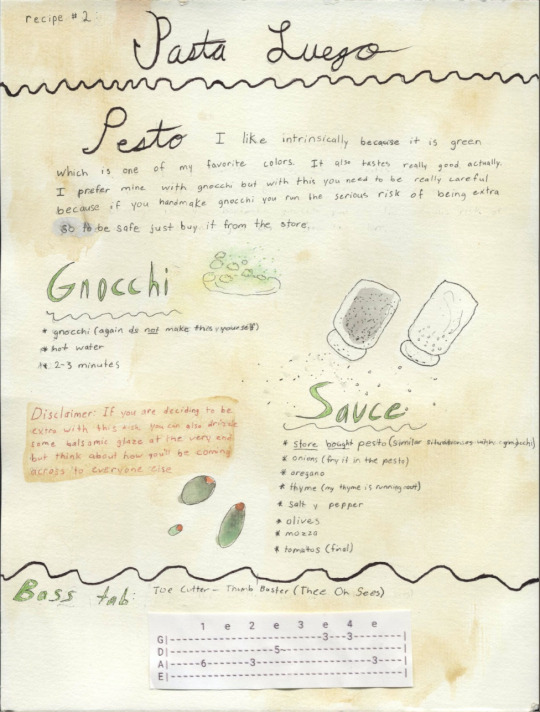 recipe # 2
Pasta Luego
Pesto I like intrinsically because it is green
which is one of my favorite colors. It also tastes really good, actually.
I prefer mine with gnocchi but with this you need to be really careful
because if you handmake gnocchi you run the serious risk of being extra
so to be safe just buy it from the store.
Gnocchi
* gnocchi (again do not make this yourself)
* hot water
* 2-3 minutes
Disclaimer: If you are deciding to be
extra with this dish, you can also drizzle
some balsamic glaze at the very end
but think about how you'll be coming
across to everyone else
Sauce
* store bought pesto (similar with gnocchi)
* onions (fry it in the pesto)
* oregano
* thyme (my thyme is running out)
* salt y pepper
* olives
* mozza
* tomatos (fine!)
Bass tab: Toe Cutter - Thumb Buster (Thee Oh Sees)
1 e 2 e 3 e 4 e
G|----------------------3---3-------|
D|---------------5~-----------------|
A|-----6-------3-----------------3----|
E|----------------------------------|